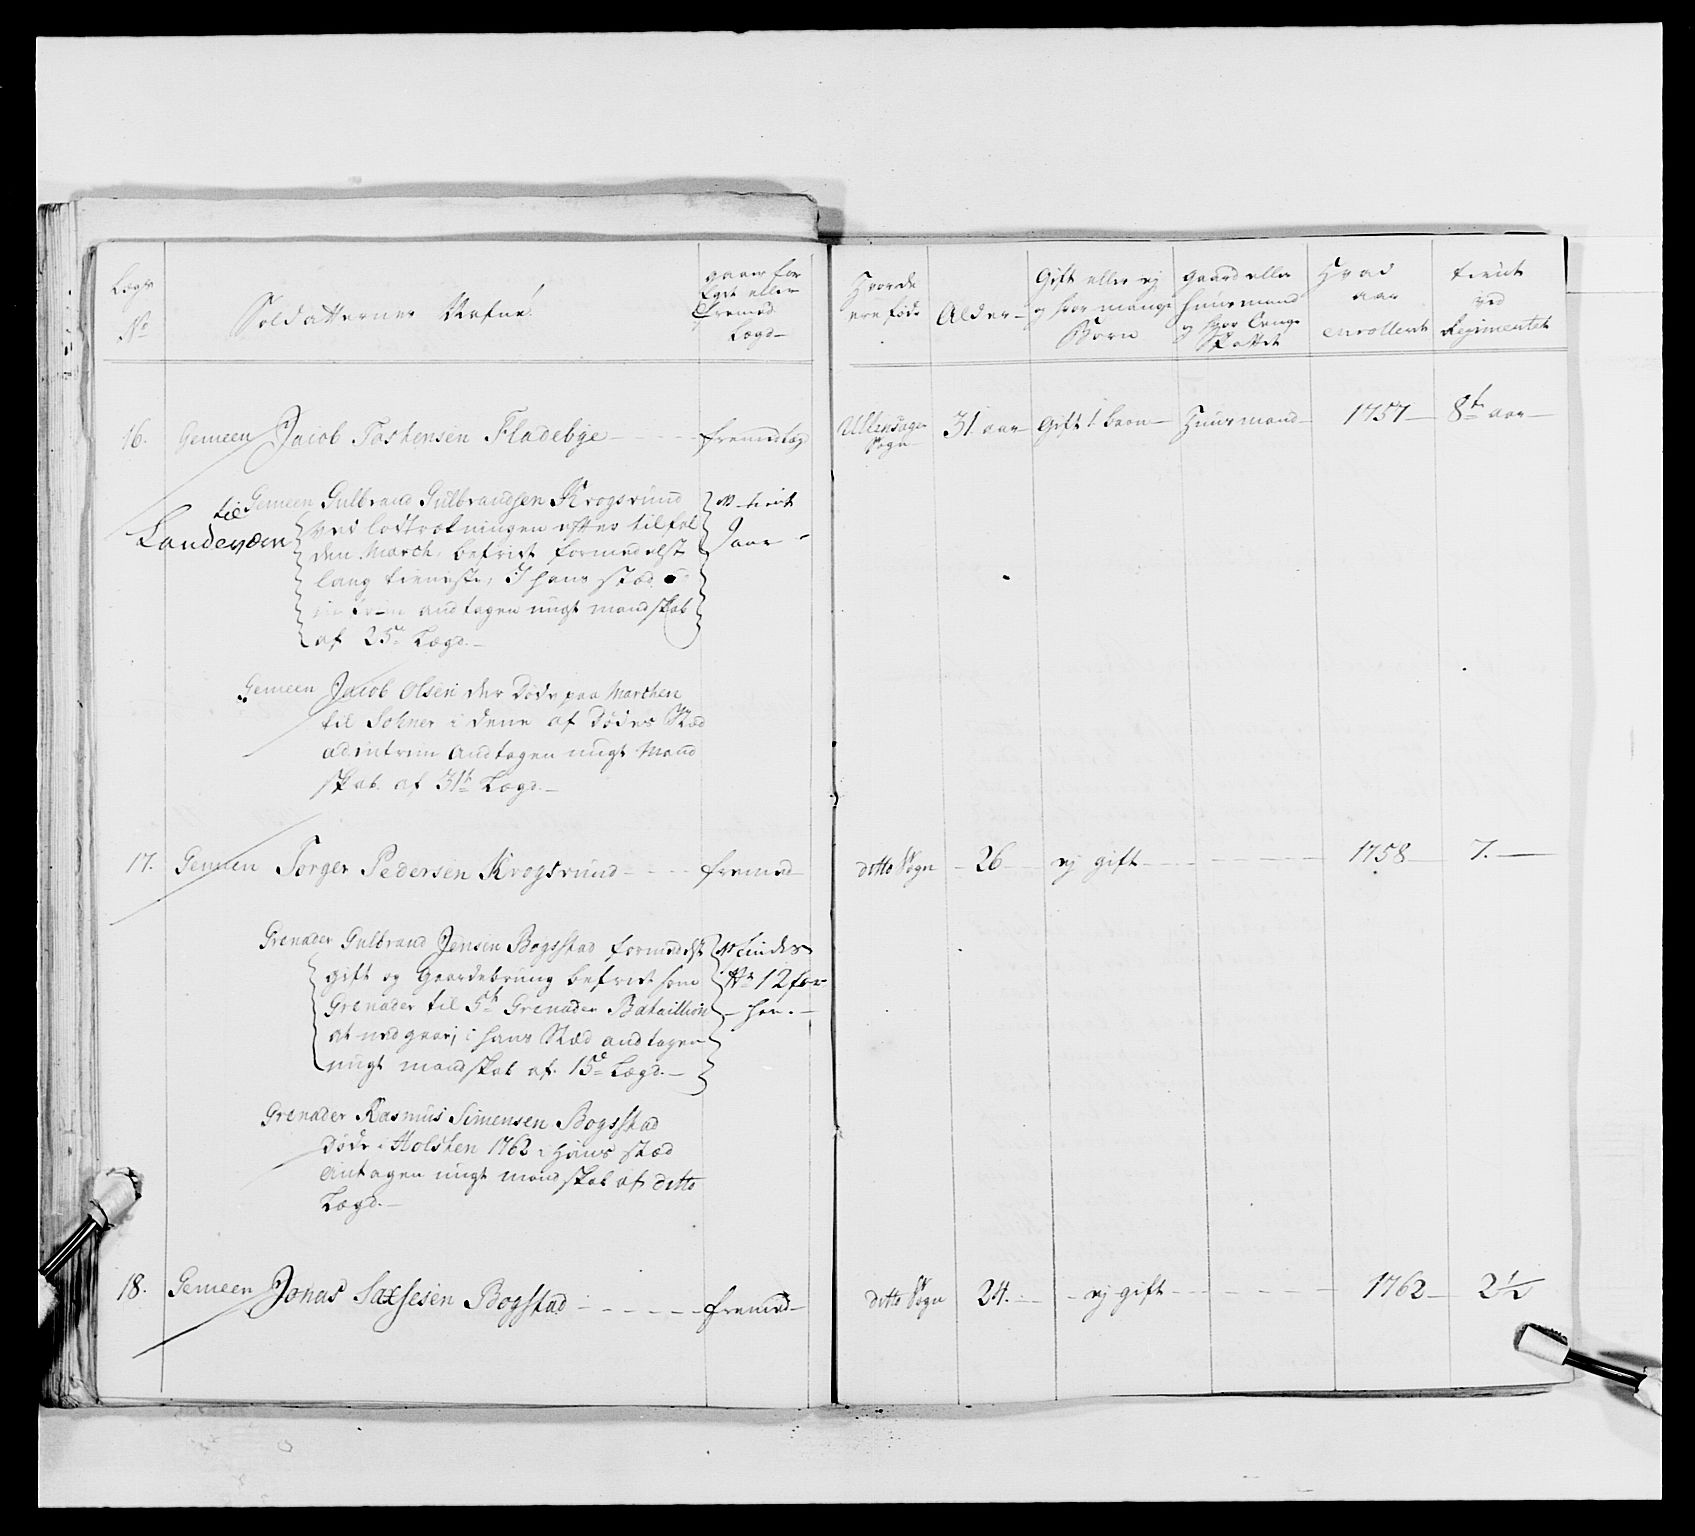 Lægs
No
Soldatternes Nafne
gaaer for
Eget eller
fremed
Lægd
Hvorde
ere föde
Alder
Gift eller ej
og hvor mange
Börn
Gaard eller
Huusmand
og hvor længe
Skattet
Hvad
aar
enrollerede
tient
ved
Regimentet
16. Gemeen Jacob Tostensen Fladebye fremed læg Ullensager Sogn 31 aar Gift 1 barn Huusmand 1757 8t aar
til
Landeværn
Gemeen Gulbrand Gulbrandsen Krogsrund
ved lodtrækningen efter tilfal
den March, befriet formedelst
lang tieneste, I hans stæd
andtagen nügt mandskab
af 25de Lægd.
tient
9 aar
Gemeen Jacob Olsen der döde paa Marchen
til Holsten i dene af dödes Stæd
ad intrim Andtagen nügt Mand
skab af 31te Lægd.
17. Gemeen Torger Pedersen Krogsrund fremed ditto Sogn 26 ej gift 1758 7.
Grenader Gulbrand Jensen Bogstad formedelst
gift og Gaardebrüng befriet som
Grenader til 5te Grenader Bataillion
at indgaae; i hans Stæd andtagen
nügt mandskab af 15de Lægd.
findes
No 12 for
hen.
Grenader Rasmus Simensen Bogsstad
döde i Holsten 1762 i Hans stæd
antagen nügt mandskab af ditto
Lægd.
18. Gemeen Jonas Saxsesen Bogstad fremed ditto Sogn 24. ej gift 1762 2½